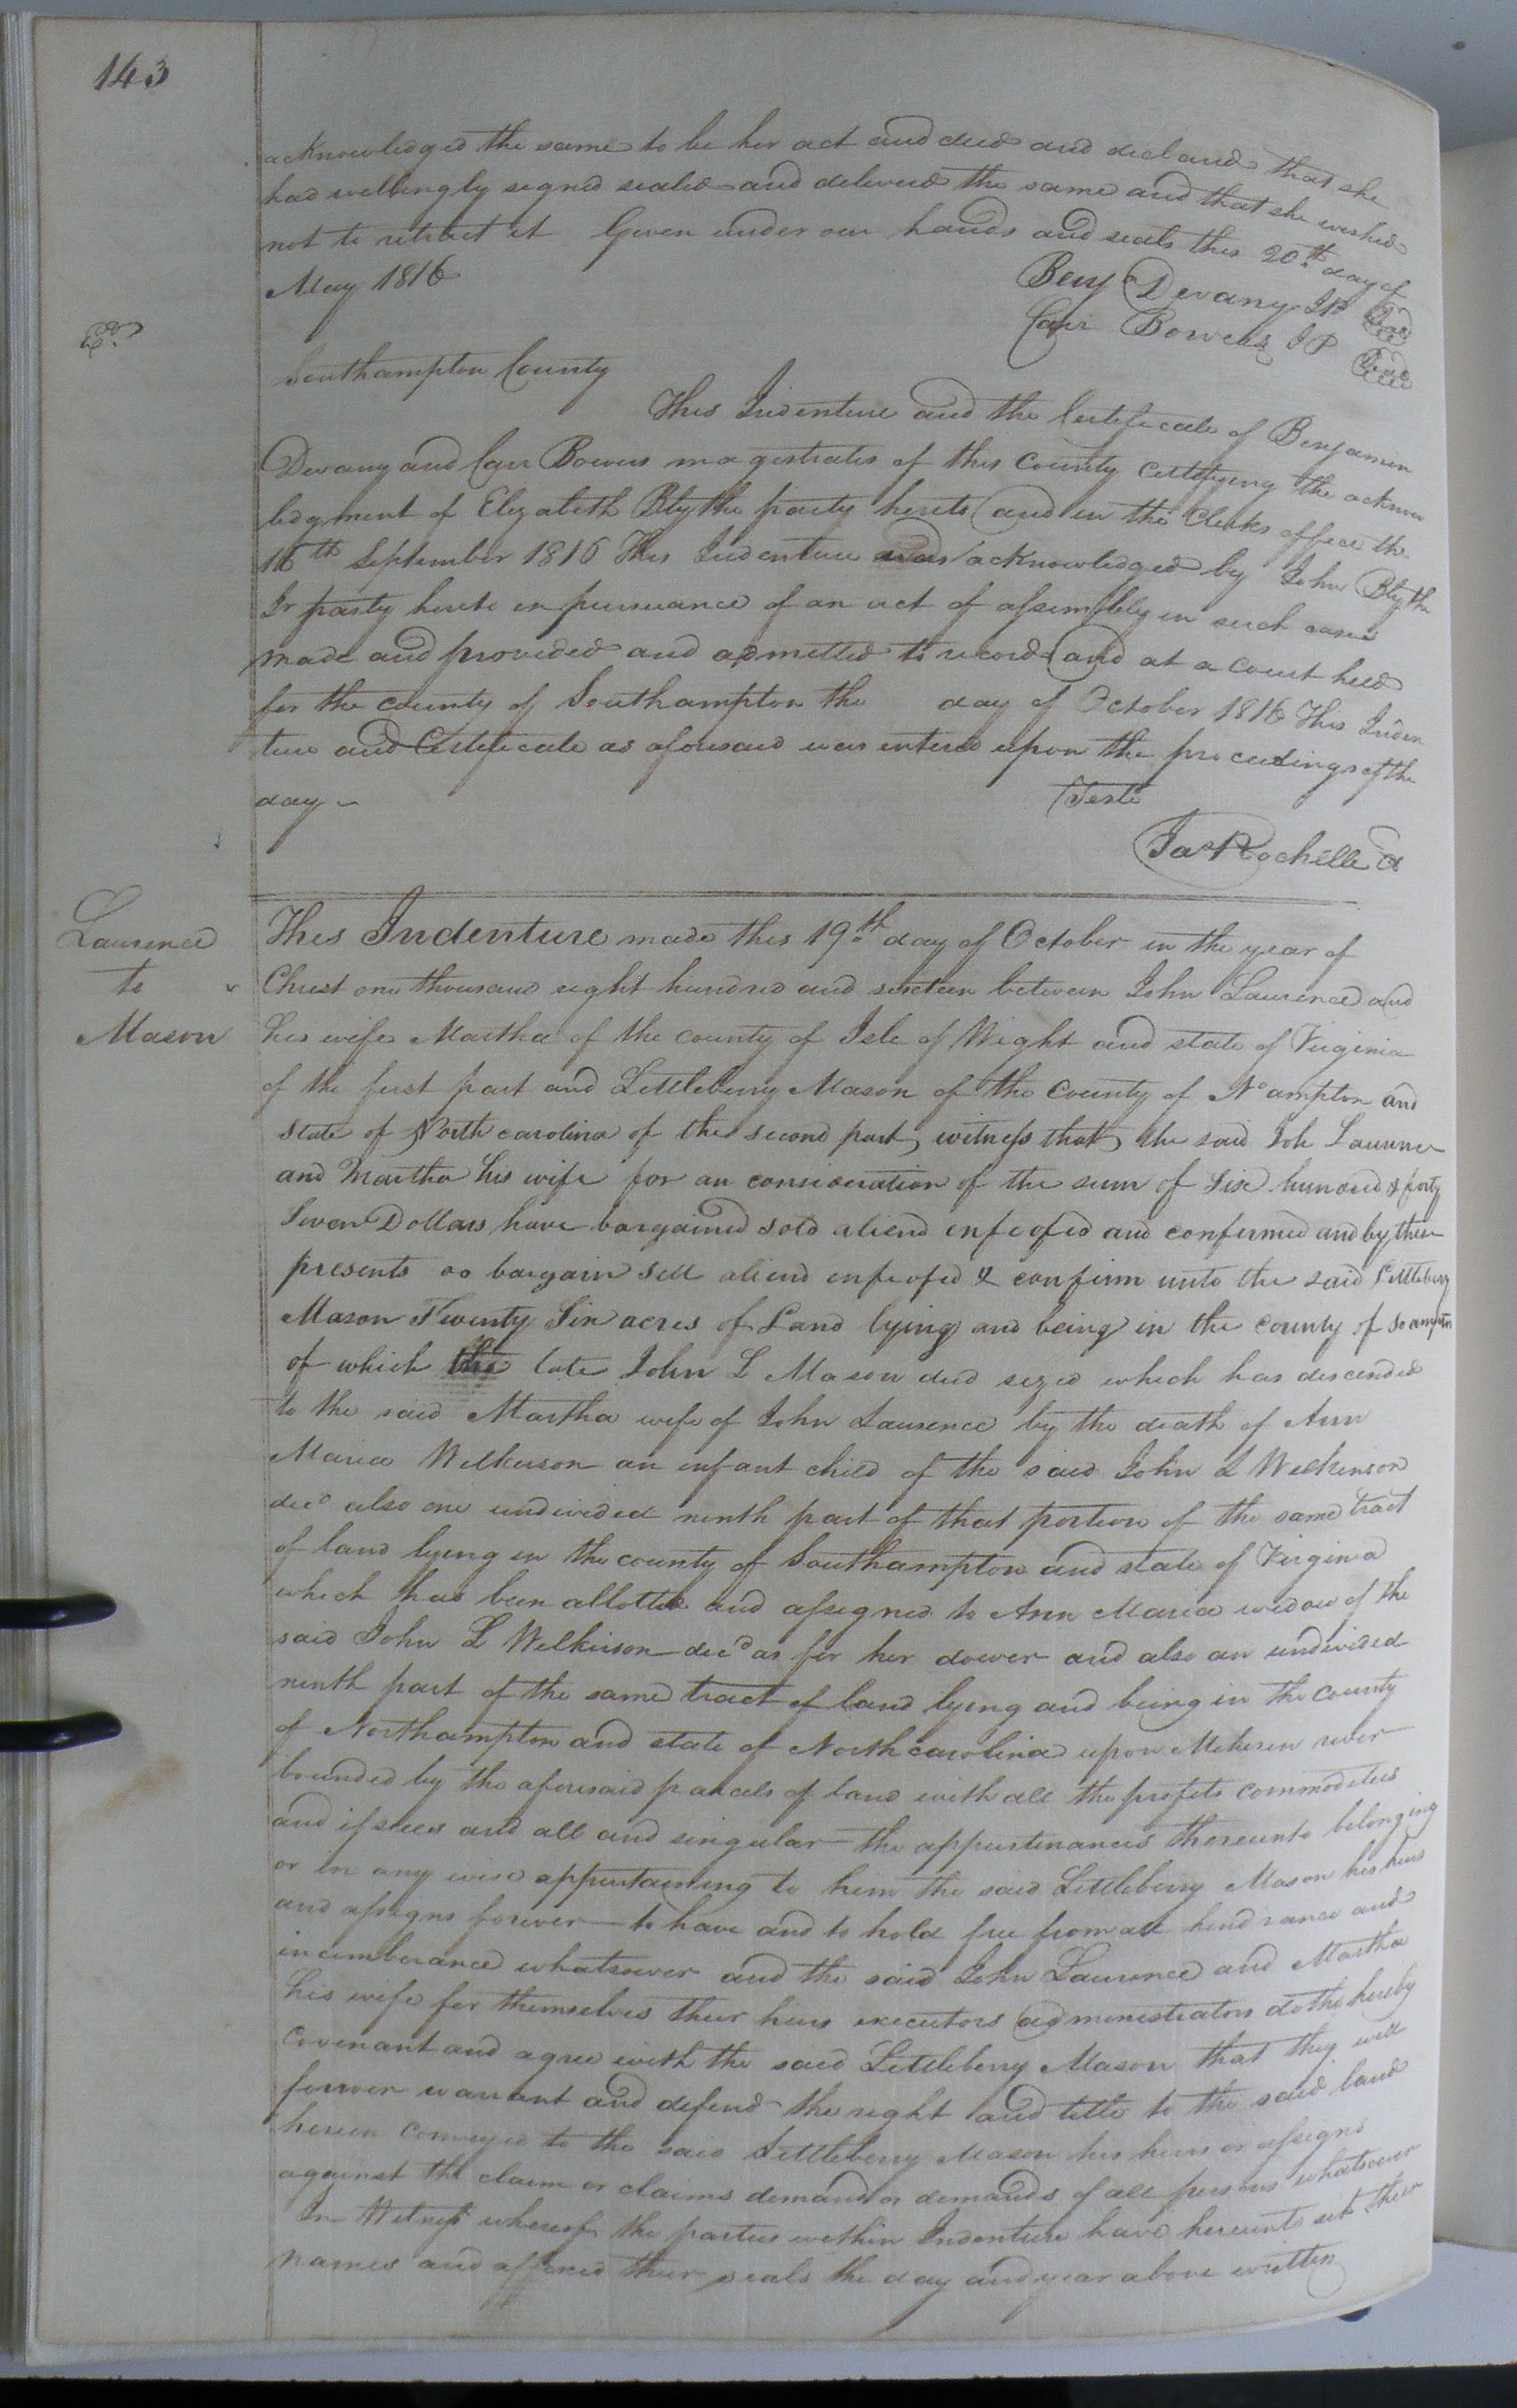 143
acknowledged the same to be her act and deed and declared that she
had willingly signed sealed and delivered the same and that she wished
not to retract it Given under our hands and seals this 20th day of
May 1816
Benj Devany JP Seal
Carr Bowers JP Seal
Southampton County
This Indenture and the Certificate of Benjamin
Devany and Carr Bowers magistrates of this County certifying the acknow
ledgment of Elizabeth Blythe party hereto and in the Clerks office the
16th September 1816 This Indenture was acknowledged by John Blythe
Jr party hereto in pursuance of an act of assembly in such cases
made and provided and admitted to record and at a Court held
for the county of Southampton the day of October 1816 This Inden
ture and Certificate as aforesaid was entered upon the proceedings of the
day
Teste
Jas Rochelle C
Laurence
to
Mason
This Indenture made this 19th day of October in the year of
Christ one thousand eight hundred and sixteen between John Laurence and
his wife Martha of the county of Isle of Wight and state of Virginia
of the first part and Littleberry Mason of the County of No ampton and
State of North carolina of the second part, witness that, the said Joh Laurence
and Martha his wife for an consideration of the sum of Six hundred & forty
Seven Dollars have bargained sold aliend enfeofed and confirmed and by these
presents do bargain sell aliend enfeofed & confirm unto the said Littleberry
Mason Twenty Six acres of Land lying and being in the county of So ampton
of which the late John L Mason died sezed which has descended
to the said Martha wife of John Laurence by the death of Ann
Maria Wilkinson an infant child of the said John L Wilkinson
decd also one undivided ninth part of that portion of the same tract
of land lying in the county of Southampton and state of Virginia
which has been allotted and assigned to Ann Maria widow of the
said John L Wilkinson decd as for her dower and also an undivided
ninth part of the same tract of land lying and being in the county
of Northampton and state of North carolina upon Meherin river
bounded by the aforesaid parcels of land with all the profits commodities
and issues and all and singular the appurtinances thereunto belonging
or in any wise appurtaining to him the said Littleberry Mason his heirs
and assigns forever to have and to hold free from all hindrance and
incumberance whatsoever and the said John Laurence and Martha
his wife for themselves their heirs executors administrators doth hereby
covenant and agree with the said Littleberry Mason that they will
forever warrant and defend the right and title to the said land
herein conveyed to the said Littleberry Mason his heirs or assigns
against the claim or claims demand or demands of all persons whatsoever
In Witness whereof the parties within Indenture have hereunto set their
names and affixed their seals the day and year above written